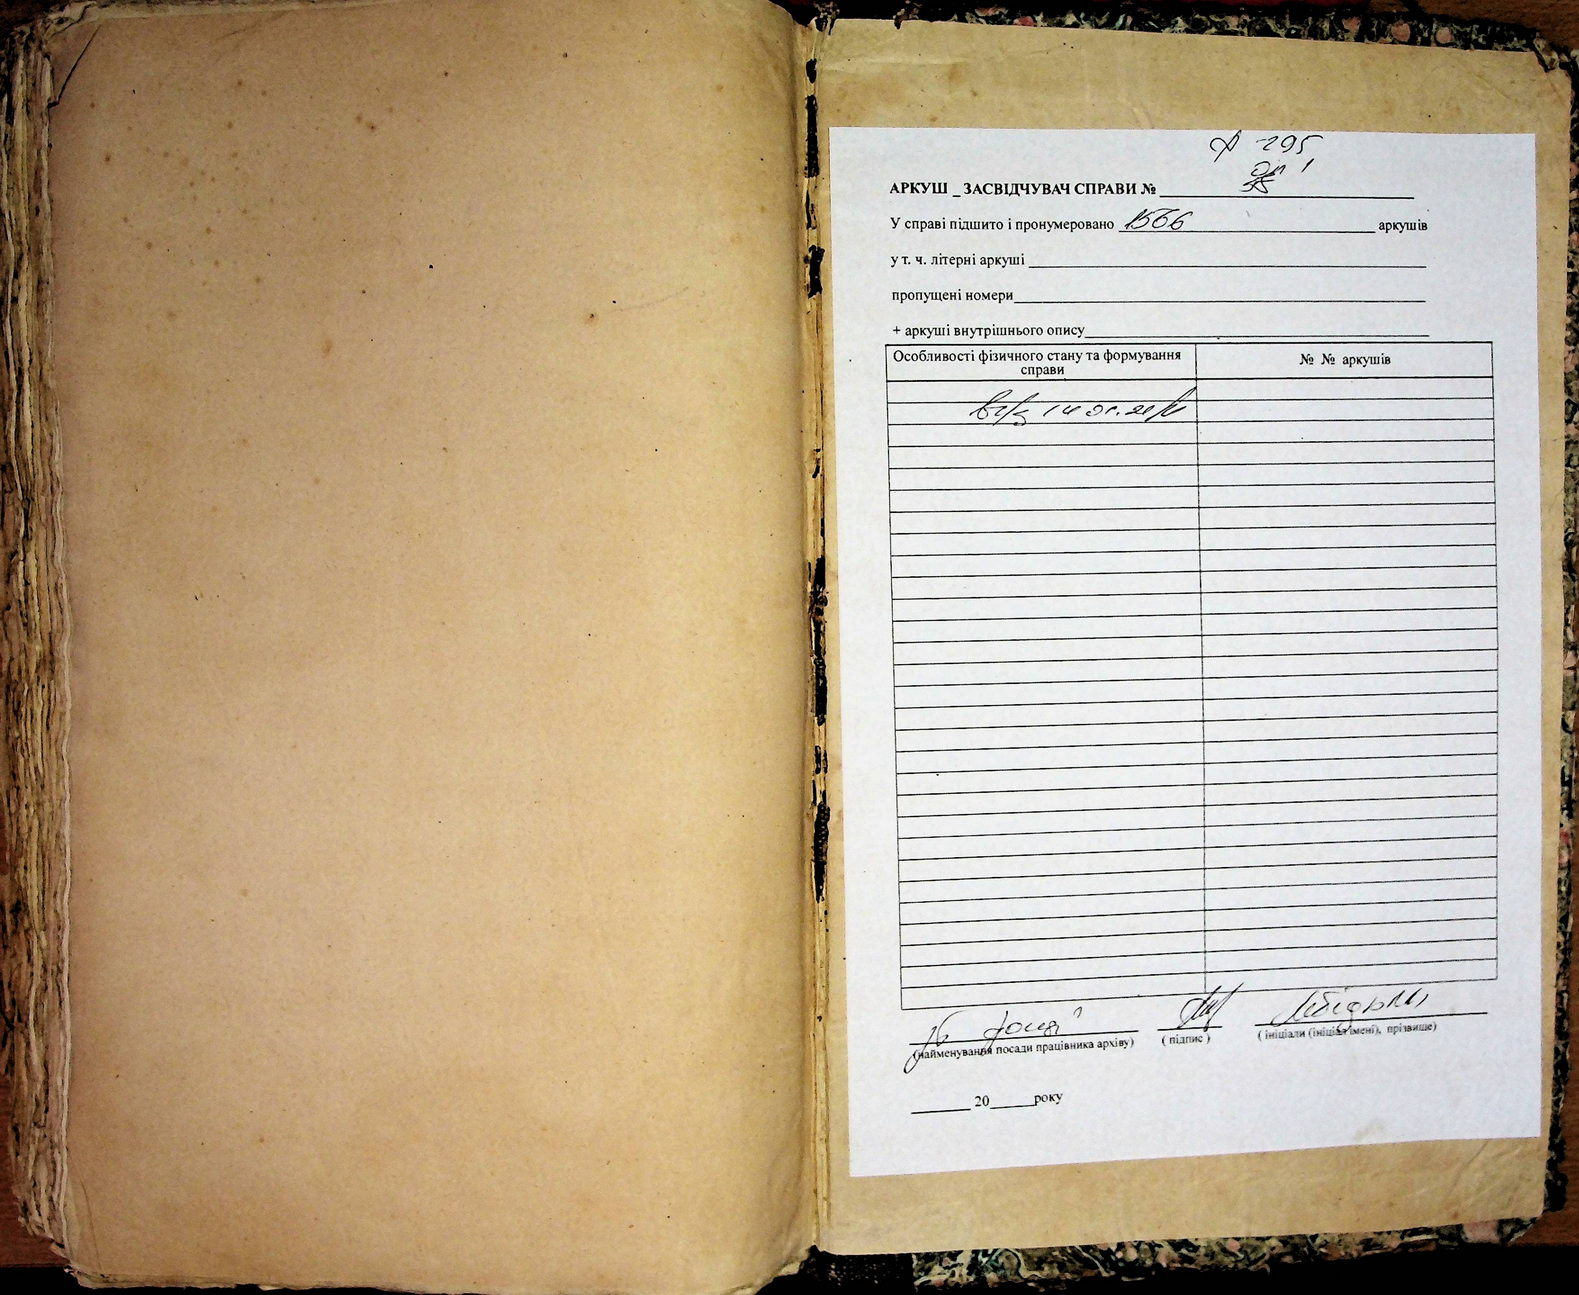 ф 295
оп 1
АРКУШ _ ЗАСВІДЧУВАЧ СПРАВИ №
У справі підшито і пронумеровано 1566 аркушів
у т. ч. літерні аркуші
пропущені номери
+ аркуші внутрішнього опису
Особливості фізичного стану та формування справи
№ № аркушів
(найменування посади працівника архіву)
( підпис )
( ініціали (ініціал імені), прізвище)
20 року